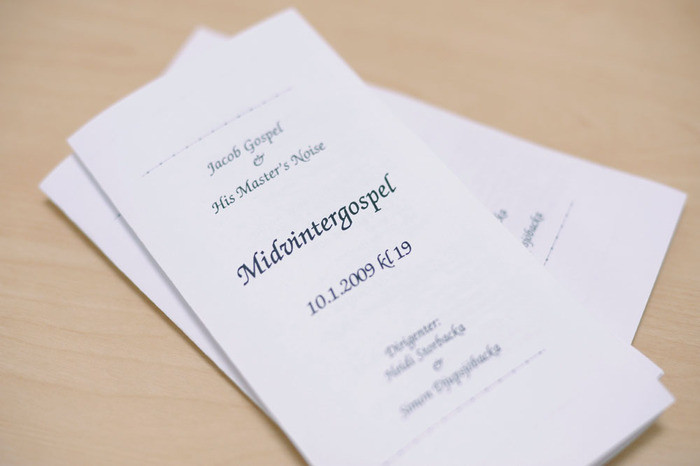 Jacob Gospel
&
His Master's Noise
Midvintergospel
10.1.2009 kl 19
Dirigenter:
Heidi Storbacka
&
Simon Djupsjöbacka